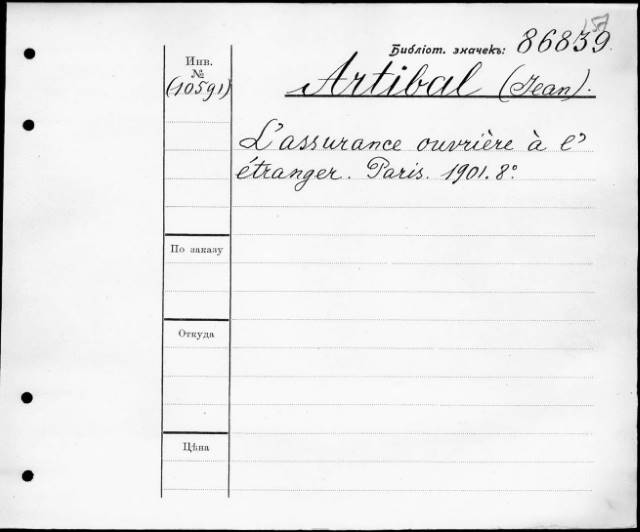 Библіот. значекъ: 86839.
Инв.
№
(10591)
Artibal (Jean).
L'assurance ouvrière à l'
étranger. Paris. 1901. 8º
По заказу
Откуда
Цѣна